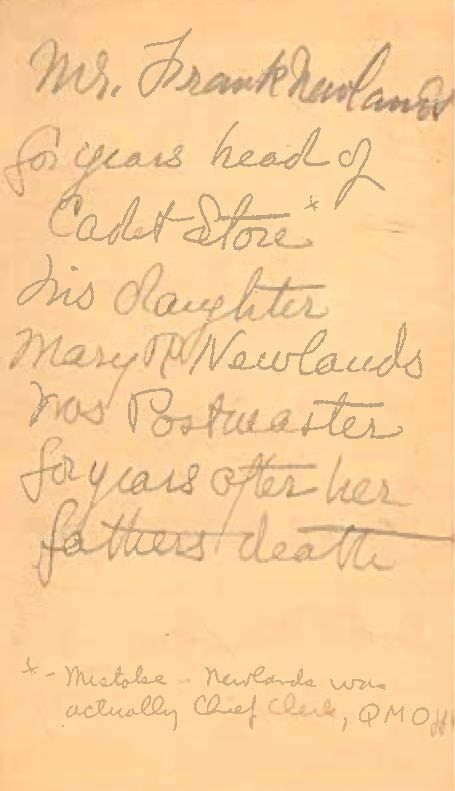 Mr. Frank Newlands
for years head of
Cadet Store *
his daughter
Mary R Newlands
was Postmaster
for years after her
fathers death
* - Mistake - Newlands was
actually Chief Clerk, QMO